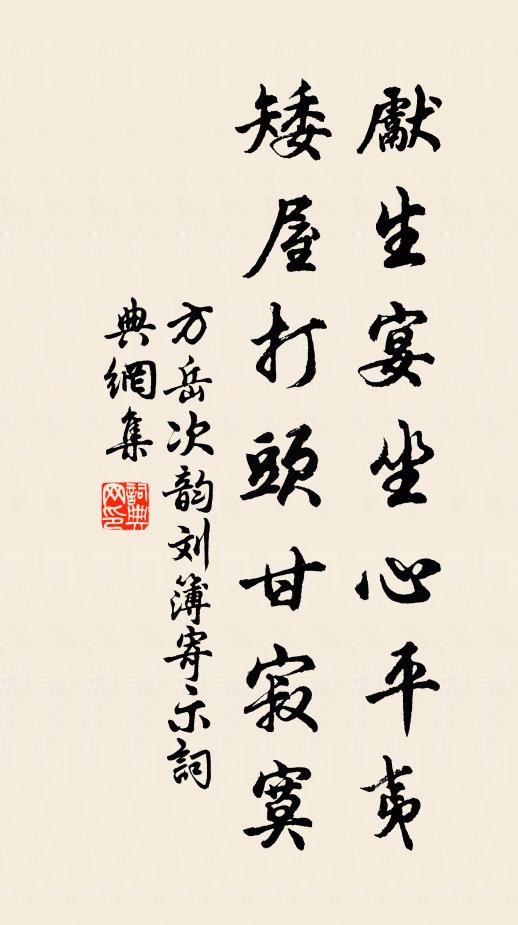 獻生宴坐心平夷
矮屋打頭甘寂寞
方岳次韵刘簿寄示詞
典網集
詞典网印